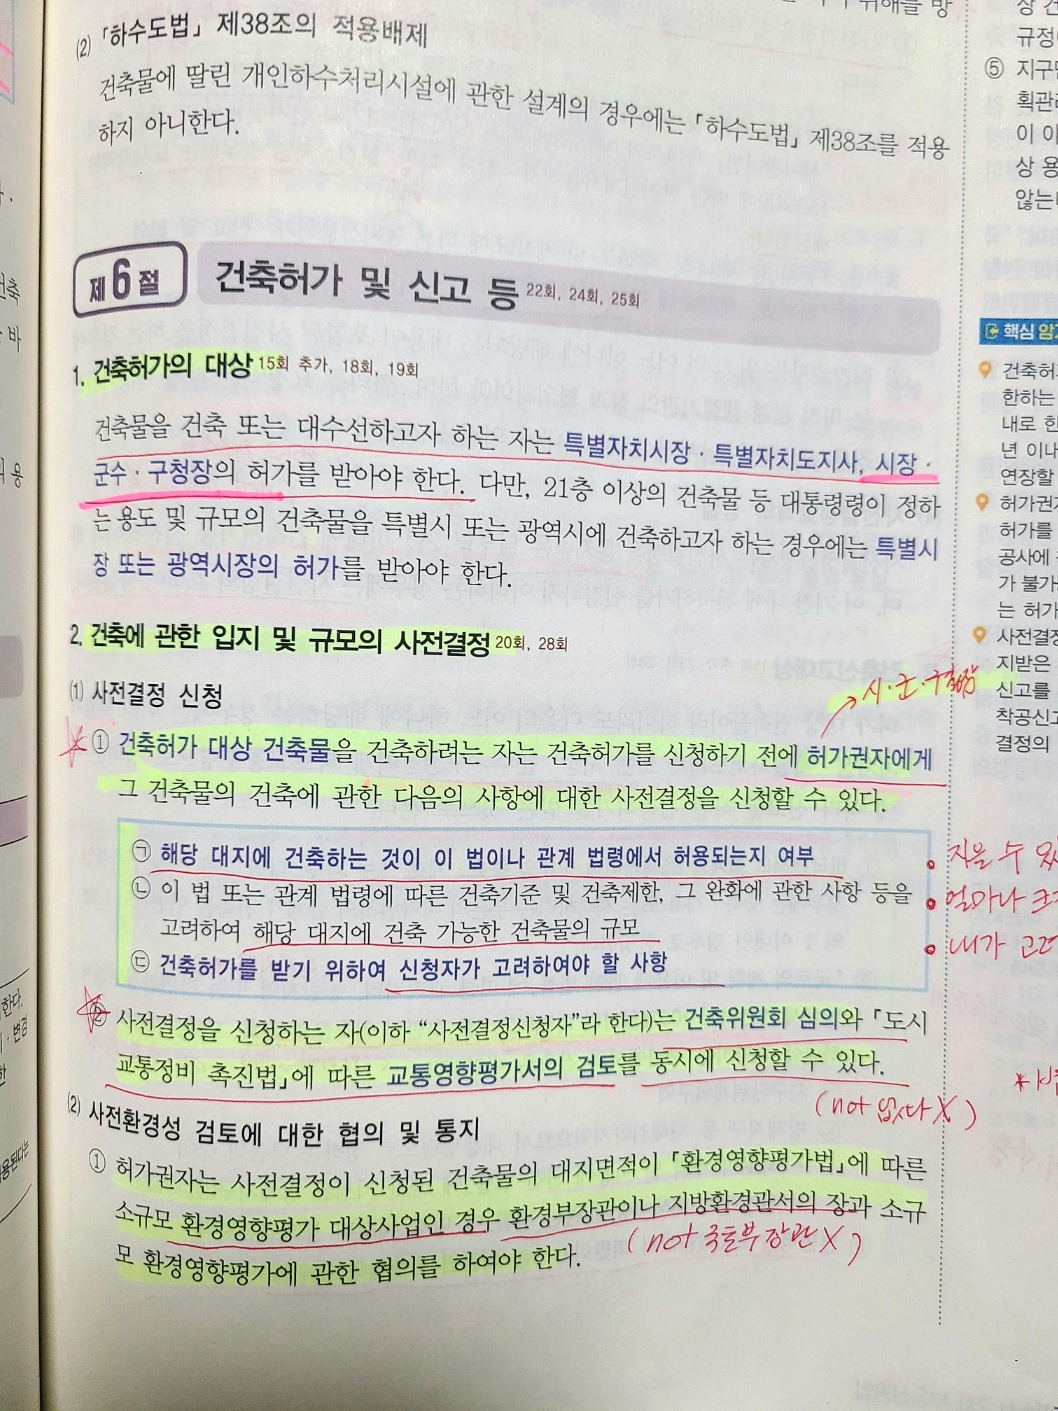 (2) 「하수도법」 제38조의 적용배제
건축물에 딸린 개인하수처리시설에 관한 설계의 경우에는 「하수도법」 제38조를 적용
하지 아니한다.
제6절 건축허가 및 신고 등 22회, 24회, 25회
1. 건축허가의 대상 15회 추가, 18회, 19회
건축물을 건축 또는 대수선하고자 하는 자는 특별자치시장·특별자치도지사, 시장·
군수·구청장의 허가를 받아야 한다. 다만, 21층 이상의 건축물 등 대통령령이 정하
는 용도 및 규모의 건축물을 특별시 또는 광역시에 건축하고자 하는 경우에는 특별시
장 또는 광역시장의 허가를 받아야 한다.
2. 건축에 관한 입지 및 규모의 사전결정 20회, 28회
(1) 사전결정 신청
시·군·구청장
① 건축허가 대상 건축물을 건축하려는 자는 건축허가를 신청하기 전에 허가권자에게
그 건축물의 건축에 관한 다음의 사항에 대한 사전결정을 신청할 수 있다.
㉠ 해당 대지에 건축하는 것이 이 법이나 관계 법령에서 허용되는지 여부
㉡ 이 법 또는 관계 법령에 따른 건축기준 및 건축제한, 그 완화에 관한 사항 등을
고려하여 해당 대지에 건축 가능한 건축물의 규모
㉢ 건축허가를 받기 위하여 신청자가 고려하여야 할 사항
지을 수
얼마나
내가
② 사전결정을 신청하는 자(이하 “사전결정신청자”라 한다)는 건축위원회 심의와 「도시
교통정비 촉진법」에 따른 교통영향평가서의 검토를 동시에 신청할 수 있다.
(not 없다 X)
(2) 사전환경성 검토에 대한 협의 및 통지
① 허가권자는 사전결정이 신청된 건축물의 대지면적이 「환경영향평가법」에 따른
소규모 환경영향평가 대상사업인 경우 환경부장관이나 지방환경관서의 장과 소규
모 환경영향평가에 관한 협의를 하여야 한다.
(not 국토부장관 X)
상 건
규정
⑤ 지구
획관리
이 이
상 용
않는
핵심 암기
건축허
한하는
내로 한
년 이내
연장할
허가권자
허가를
공사에
가 불가
는 허가
사전결정
지받은
신고를
착공신고
결정의